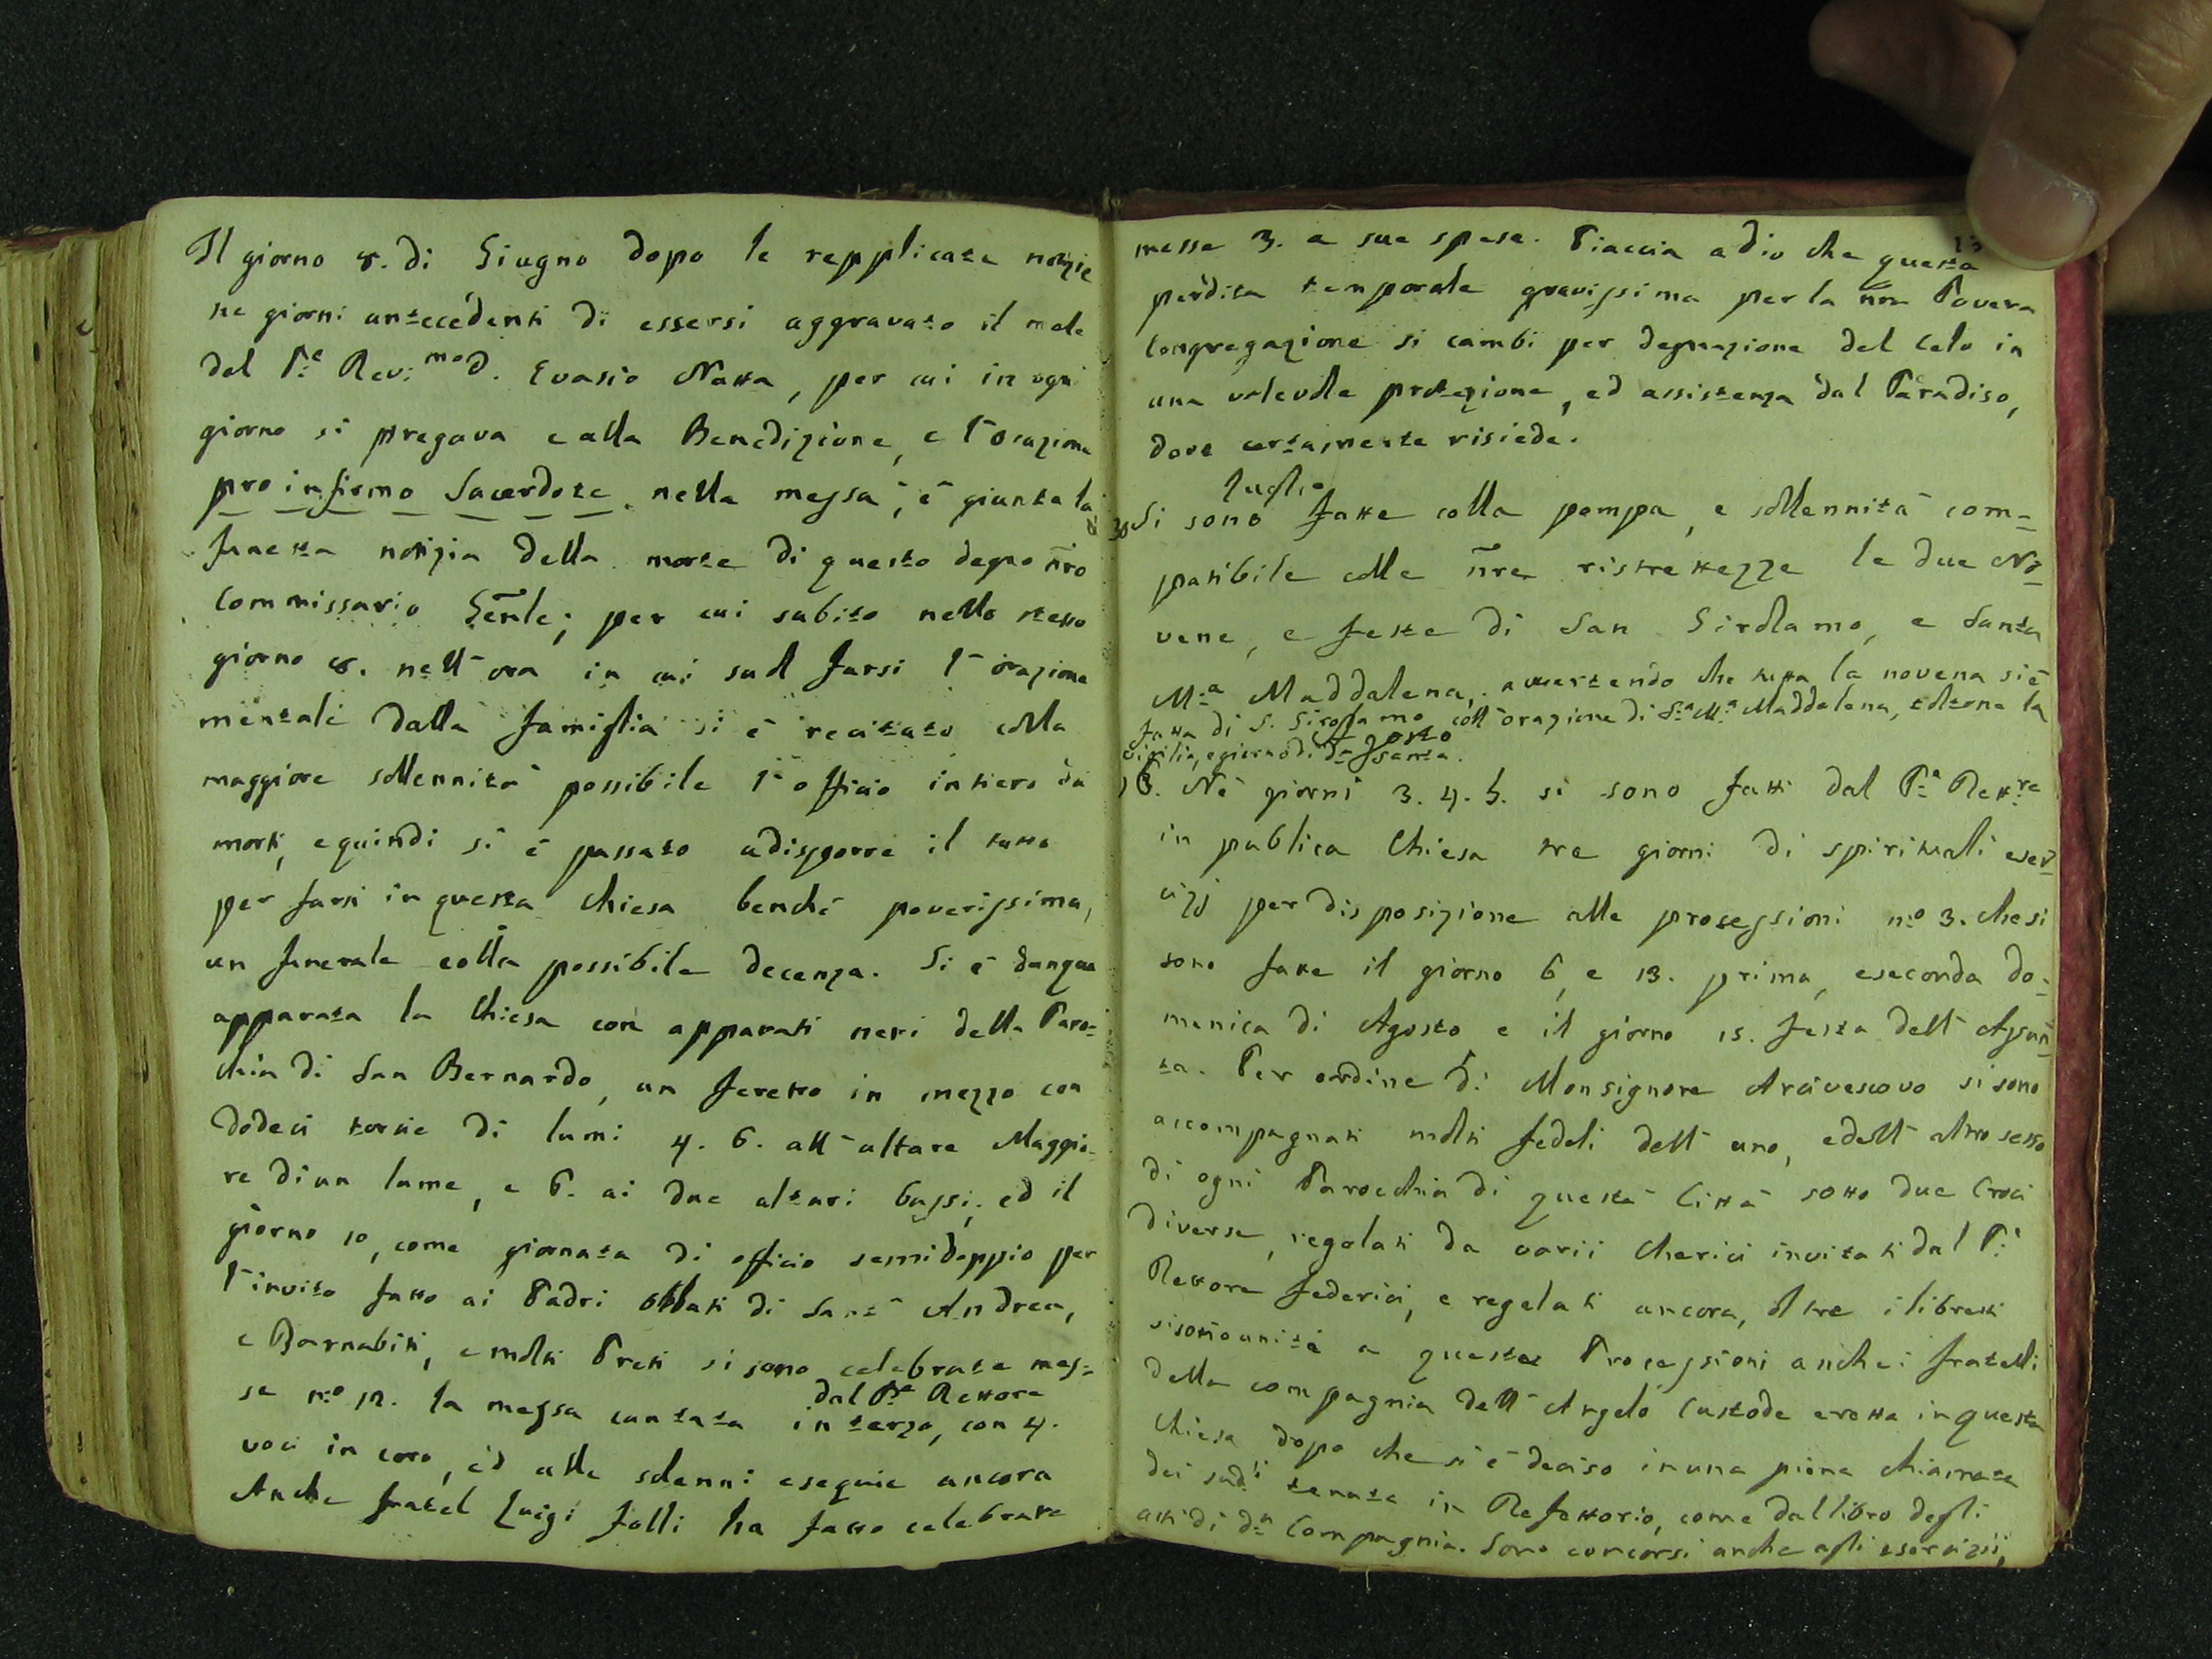 Il giorno 8. di Giugno dopo le repplicate notizie
ne giorni antecedenti di essersi aggravato il male
del P.e Rev:mo D. Evasio Natta, per cui in ogni
giorno si pregava e alla Benedizione, e l'orazione
pro infirmo Sacerdote nella messa, è giunta la
funesta notizia della morte di questo degno nro
Commissario Genle; per cui subito nello stesso
giorno 8. nell'ora in cui suol farsi l'orazione
mentale dalla famiglia si è recitato colla
maggiore sollennità possibile l'officio intiero da
morti, e quindi si è passato a disporre il tutto
per farsi in questa Chiesa benchè poverissima,
un funerale colla possibile decenza. Si è dunque
apparata la Chiesa con apparati neri della Paro-
chia di San Bernardo, un feretro in mezzo con
dodeci torcie di lumi 4. 6. all'altare Maggio-
re di un lume, e 6. ai due altari bassi; ed il
giorno 10, come giornata di officio semidoppio per
l'invito fatto ai Padri Oblati di Sant'Andrea,
e Barnabiti, e molti Preti si sono celebrate mes-
se n:o 12. la messa cantata in terzo, con 4.
dal P.e Rettore
voci in coro, ed alle solenni esequie ancora
Anche fratel Luigi Folli ha fatto celebrare
13
messe 3. a sue spese. Piaccia a dio che questa
perdita temporale gravissima per la nra Povera
Congregazione si cambi per degnazione del Celo in
una valevole protezione, ed assistenza dal Paradiso,
dove certamente risiede.
Luglio
30 Si sono fatte colla pompa, e sollennità com-
patibile colle nre ristrettezze le due No-
vene, e feste di San Girolamo, e Santa
M.a Maddalena, avvertendo che tutta la novena si è
fatta di S. Girolamo coll'orazione di S.a M.a Maddalena, toltone la
vigilia, e giorno di d.a Santa.
Agosto
16. Nè giorni 3. 4. 5. si sono fatti dal P.e Rett.re
in publica Chiesa tre giorni di spirituali eser-
cizj per disposizione alle processioni n:o 3. che si
sono fatte il giorno 6, e 13. prima, e seconda do-
menica di Agosto e il giorno 15. festa dell'Assun-
ta. Per ordine di Monsignore Arcivescovo si sono
accompagnati molti fedeli dell'uno, e dell'altro sesso
di ogni Parochia di questa Città sotto due Croci
diverse, regolati da varii Cherici invitati dal P.e
Rettore Federici, e regolati ancora, oltre i libretti
si sono unite a queste Processioni anche i fratelli
della compagnia dell'Angelo Custode eretta in questa
Chiesa dopo che si è deciso in una piena chiamata
dei sud.i tenuta in Refettorio, come dal libro degli
atti di d.a Compagnia. Sono concorsi anche agli esercizii,